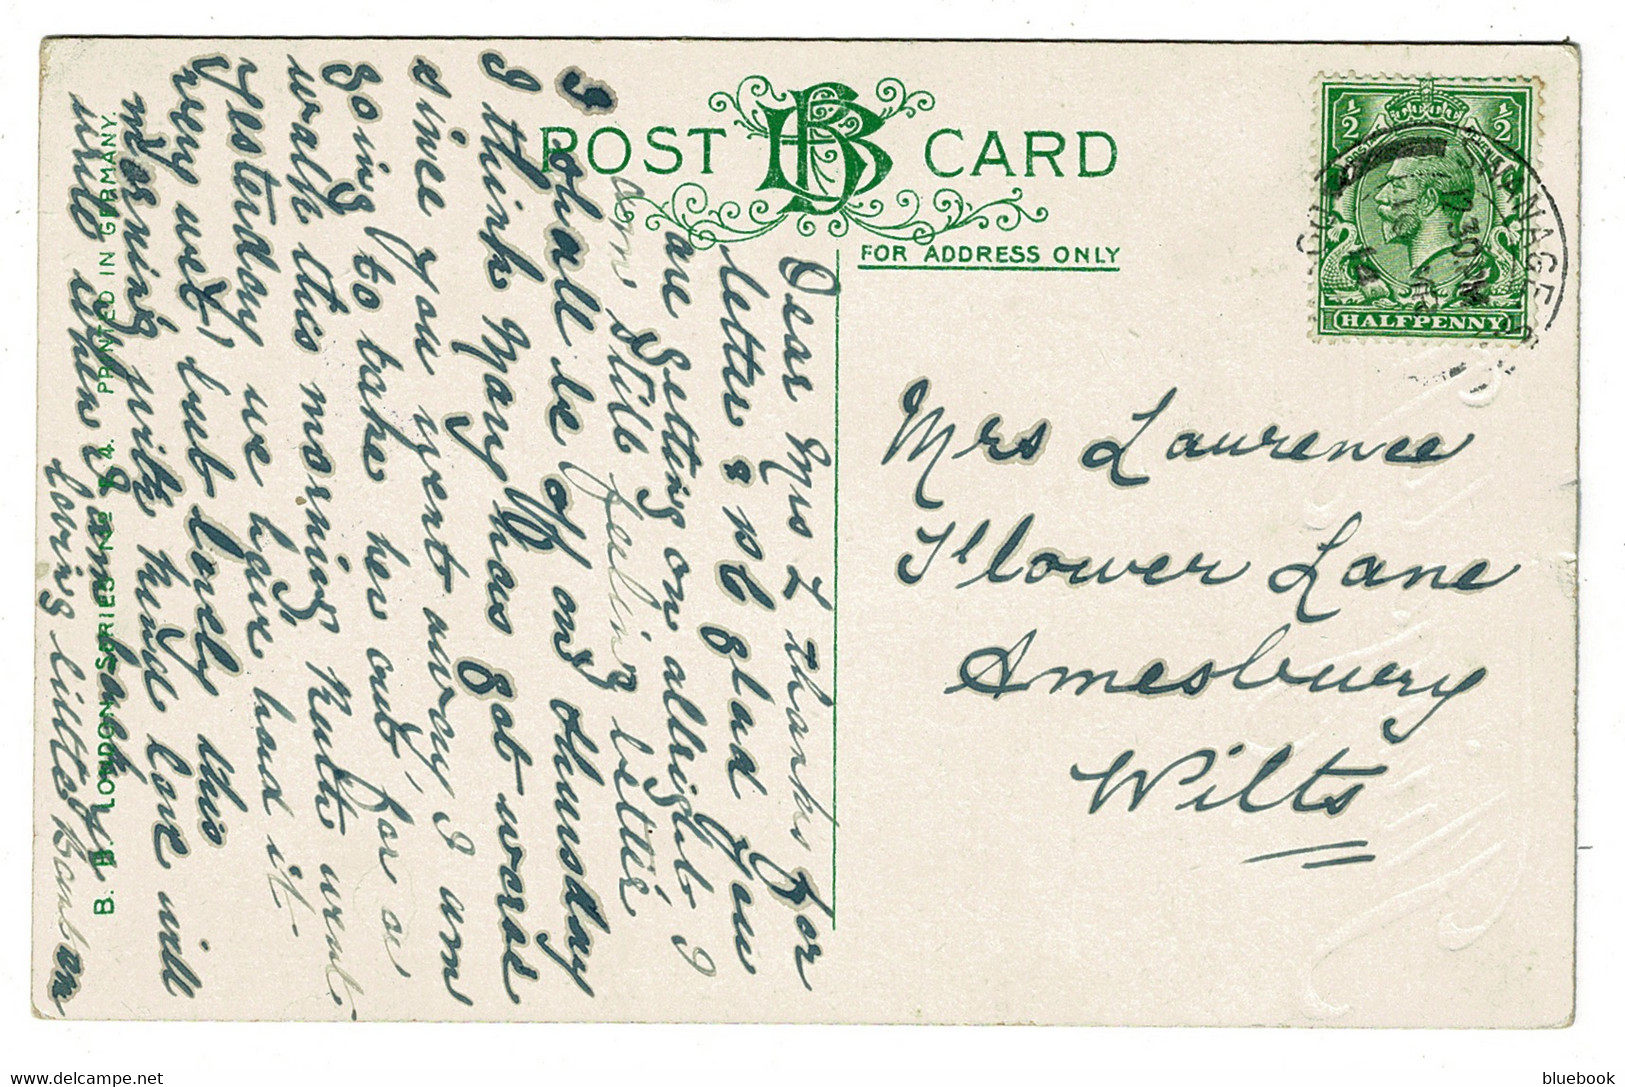 POST CARD
FOR ADDRESS ONLY
½ ½
HALFPENNY
SWANAGE
12 30 PM
14
Mrs Laurence
Flower Lane
Amesbury
Wilts
Dear Mrs L thanks for
letter & P.C glad you
are getting on allright I
am still feeling little
I shall be off on thursday
I think Mary has got worse
since you went away, I am
going to take her out for a
walk this morning Ruth went
Yesterday we have had it
very wet, but lovely this
morning, with kind love will
write when I am back
loving little
B. B. LONDON SERIES No E 4. PRINTED IN GERMANY.
bluebook